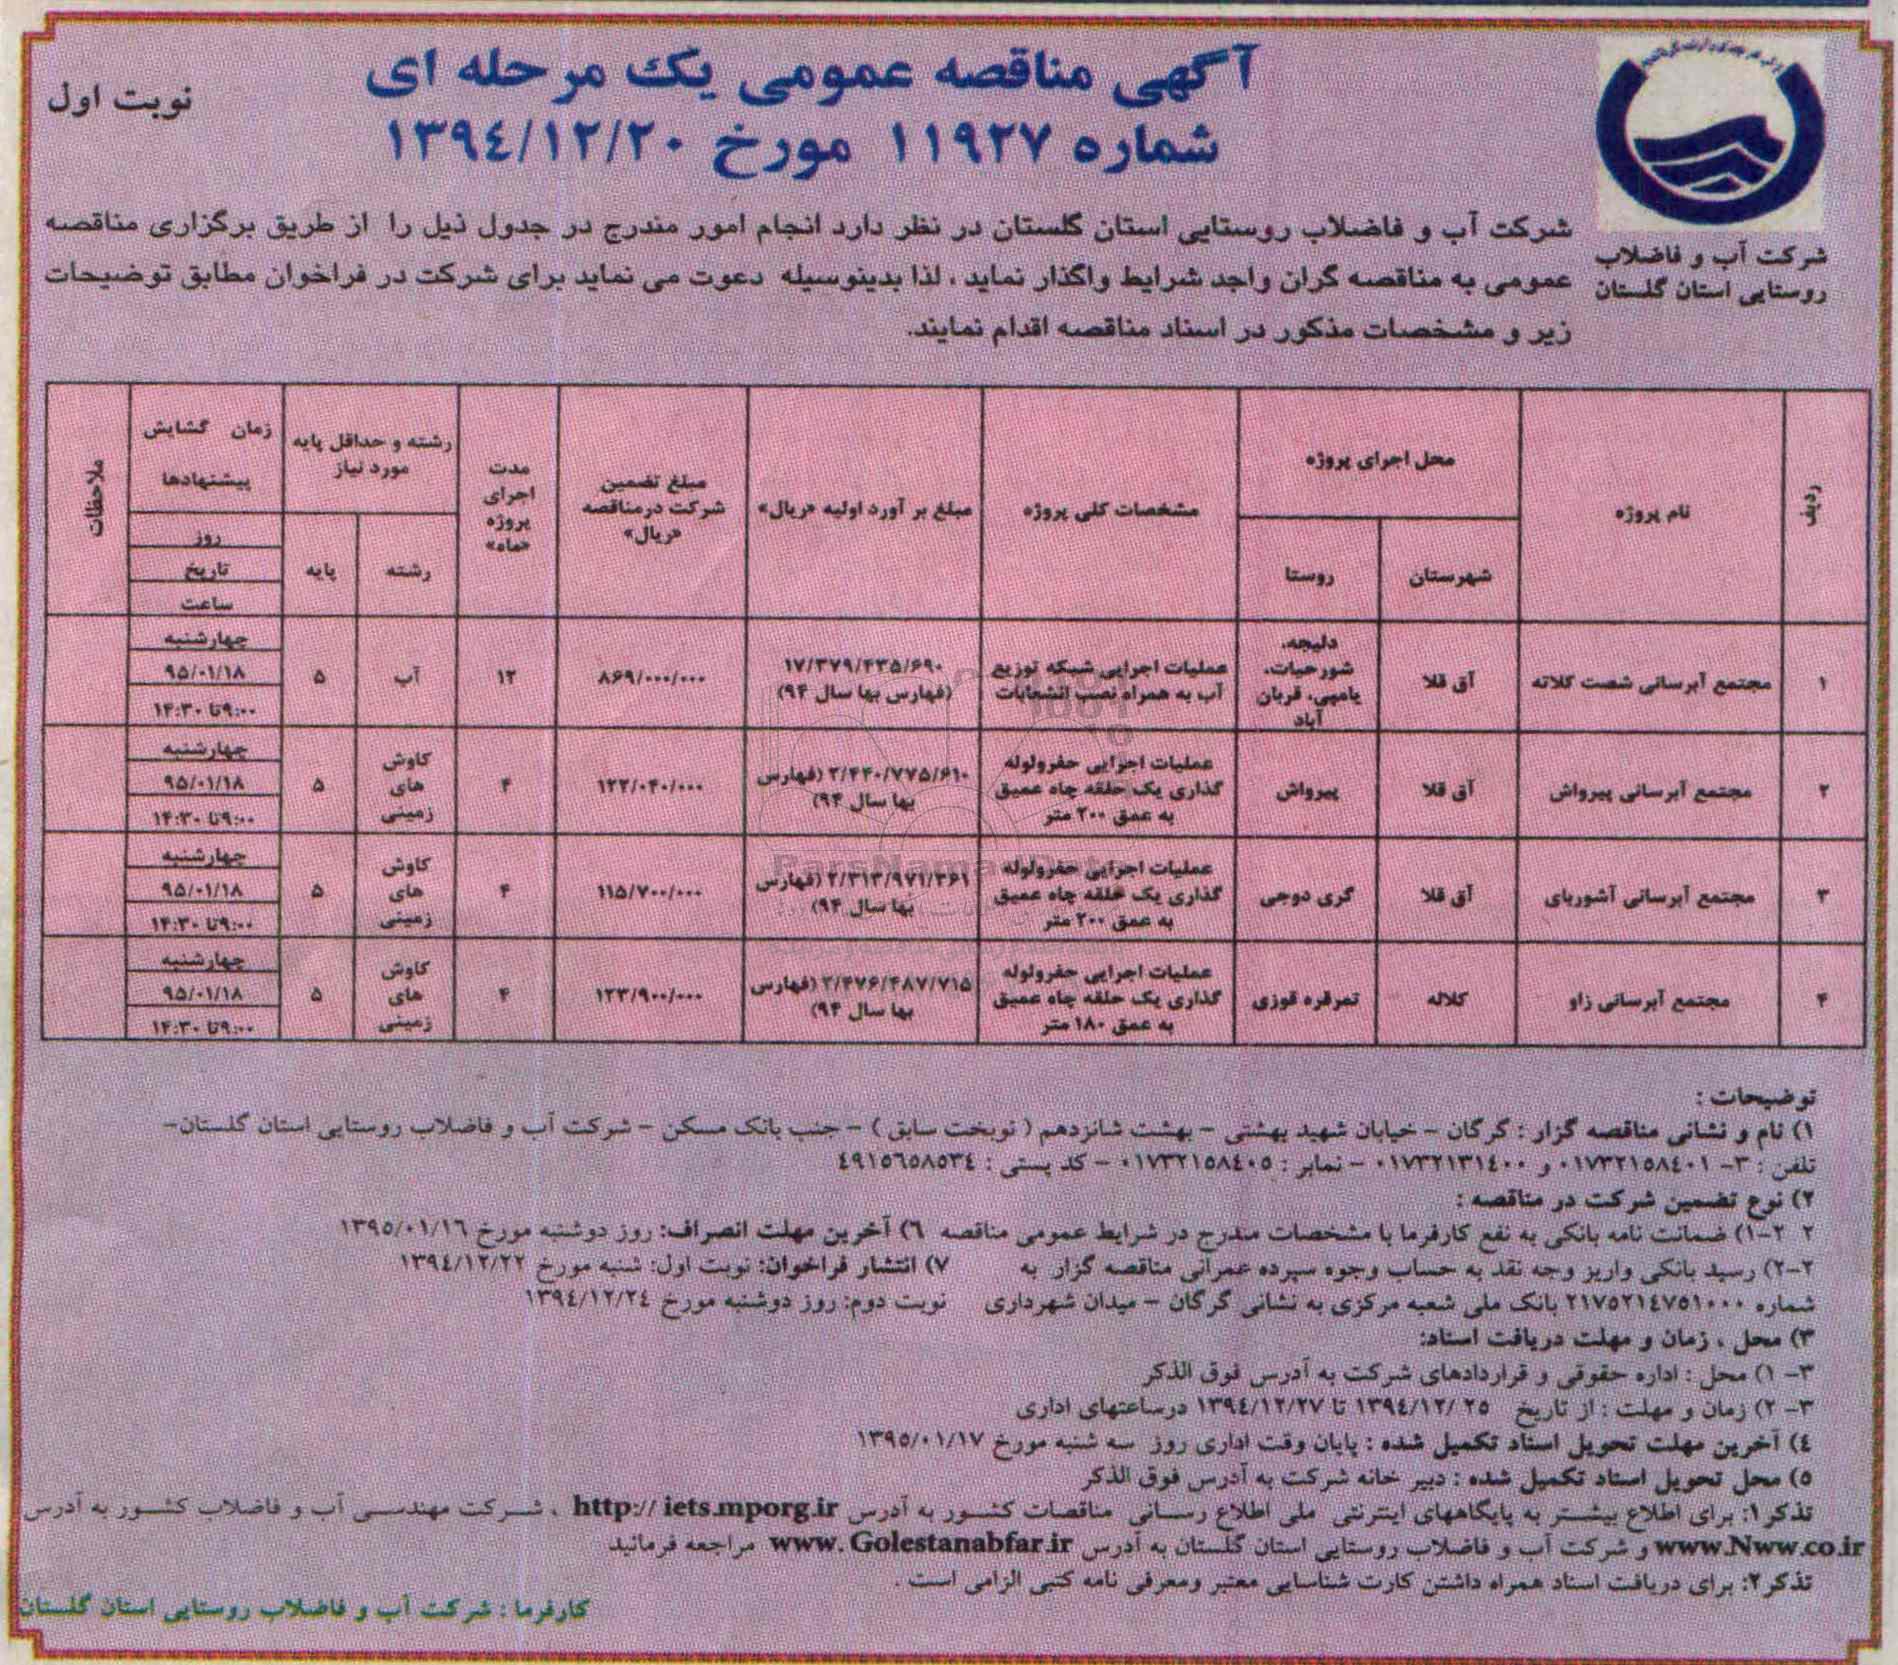 آگهی مناقصه عمومی یک مرحله ای
شماره ۱۱۹۲۷ مورخ ۱۳۹٤/۱۲/۲۰
نوبت اول
شرکت آب و فاضلاب
روستایی استان گلستان
شرکت آب و فاضلاب روستایی استان گلستان در نظر دارد انجام امور مندرج در جدول ذیل را از طریق برگزاری مناقصه
عمومی به مناقصه گران واجد شرایط واگذار نماید ، لذا بدینوسیله دعوت می نماید برای شرکت در فراخوان مطابق توضیحات
زیر و مشخصات مذکور در اسناد مناقصه اقدام نمایند.
ردیف | نام پروژه | محل اجرای پروژه | مشخصات کلی پروژه | مبلغ بر آورد اولیه «ریال» | مبلغ تضمین شرکت درمناقصه «ریال» | مدت اجرای پروژه «ماه» | رشته و حداقل پایه مورد نیاز | زمان گشایش پیشنهادها | ملاحظات
شهرستان | روستا | رشته | پایه | روز | تاریخ | ساعت
۱ | مجتمع آبرسانی شصت کلاته | آق قلا | دلیجه، شورحیات، یامپی، قربان آباد | عملیات اجرایی شبکه توزیع آب به همراه نصب انشعابات | ۱۷/۳۷۹/۴۳۵/۶۹۰ (فهارس بها سال ۹۴) | ۸۶۹/۰۰۰/۰۰۰ | ۱۲ | آب | ۵ | چهارشنبه | ۹۵/۰۱/۱۸ | ۹:۰۰تا ۱۴:۳۰
۲ | مجتمع آبرسانی پیرواش | آق قلا | پیرواش | عملیات اجرایی حفرولوله گذاری یک حلقه چاه عمیق به عمق ۲۰۰ متر | ۲/۴۴۰/۷۷۵/۶۱۰ (فهارس بها سال ۹۴) | ۱۲۲/۰۴۰/۰۰۰ | ۴ | کاوش های زمینی | ۵ | چهارشنبه | ۹۵/۰۱/۱۸ | ۹:۰۰تا ۱۴:۳۰
۳ | مجتمع آبرسانی آشوربای | آق قلا | گری دوجی | عملیات اجرایی حفرولوله گذاری یک حلقه چاه عمیق به عمق ۲۰۰ متر | ۲/۳۱۳/۹۷۱/۳۶۱ (فهارس بها سال ۹۴) | ۱۱۵/۷۰۰/۰۰۰ | ۴ | کاوش های زمینی | ۵ | چهارشنبه | ۹۵/۰۱/۱۸ | ۹:۰۰تا ۱۴:۳۰
۴ | مجتمع آبرسانی زاو | کلاله | تمرقره قوزی | عملیات اجرایی حفرولوله گذاری یک حلقه چاه عمیق به عمق ۱۸۰ متر | ۲/۴۷۶/۴۸۷/۷۱۵ (فهارس بها سال ۹۴) | ۱۲۳/۹۰۰/۰۰۰ | ۴ | کاوش های زمینی | ۵ | چهارشنبه | ۹۵/۰۱/۱۸ | ۹:۰۰تا ۱۴:۳۰
توضیحات :
۱) نام و نشانی مناقصه گزار : گرگان - خیابان شهید بهشتی - بهشت شانزدهم ( نوبخت سابق ) - جنب بانک مسکن - شرکت آب و فاضلاب روستایی استان گلستان-
تلفن : ۳- ۰۱۷۳۲۱۵۸٤۰۱ و ۰۱۷۳۲۱۳۱٤۰۰ - نمابر : ۰۱۷۳۲۱۵۸٤۰۵ - کد پستی : ٤۹۱۵٦۵۸۵۳٤
۲) نوع تضمین شرکت در مناقصه :
۲ ۲-۱) ضمانت نامه بانکی به نفع کارفرما با مشخصات مندرج در شرایط عمومی مناقصه
۲-۲) رسید بانکی واریز وجه نقد به حساب وجوه سپرده عمرانی مناقصه گزار به
شماره ۲۱۷۵۲۱٤۷۵۱۰۰۰ بانک ملی شعبه مرکزی به نشانی گرگان - میدان شهرداری
۳) محل ، زمان و مهلت دریافت اسناد:
۳- ۱) محل : اداره حقوقی و قراردادهای شرکت به آدرس فوق الذکر
۳- ۲) زمان و مهلت : از تاریخ ۲۵ /۱۳۹٤/۱۲ تا ۱۳۹٤/۱۲/۲۷ درساعتهای اداری
٤) آخرین مهلت تحویل اسناد تکمیل شده : پایان وقت اداری روز سه شنبه مورخ ۱۳۹۵/۰۱/۱۷
۵) محل تحویل اسناد تکمیل شده : دبیر خانه شرکت به آدرس فوق الذکر
٦) آخرین مهلت انصراف: روز دوشنبه مورخ ۱۳۹۵/۰۱/۱٦
۷) انتشار فراخوان: نوبت اول: شنبه مورخ ۱۳۹٤/۱۲/۲۲
نوبت دوم: روز دوشنبه مورخ ۱۳۹٤/۱۲/۲٤
تذکر۱: برای اطلاع بیشتر به پایگاههای اینترنتی ملی اطلاع رسانی مناقصات کشور به آدرس http:// iets.mporg.ir ، شرکت مهندسی آب و فاضلاب کشور به آدرس
www.Nww.co.ir و شرکت آب و فاضلاب روستایی استان گلستان به آدرس www. Golestanabfar.ir مراجعه فرمائید
تذکر۲: برای دریافت اسناد همراه داشتن کارت شناسایی معتبر ومعرفی نامه کتبی الزامی است .
کارفرما : شرکت آب و فاضلاب روستایی استان گلستان
ParsNamadData